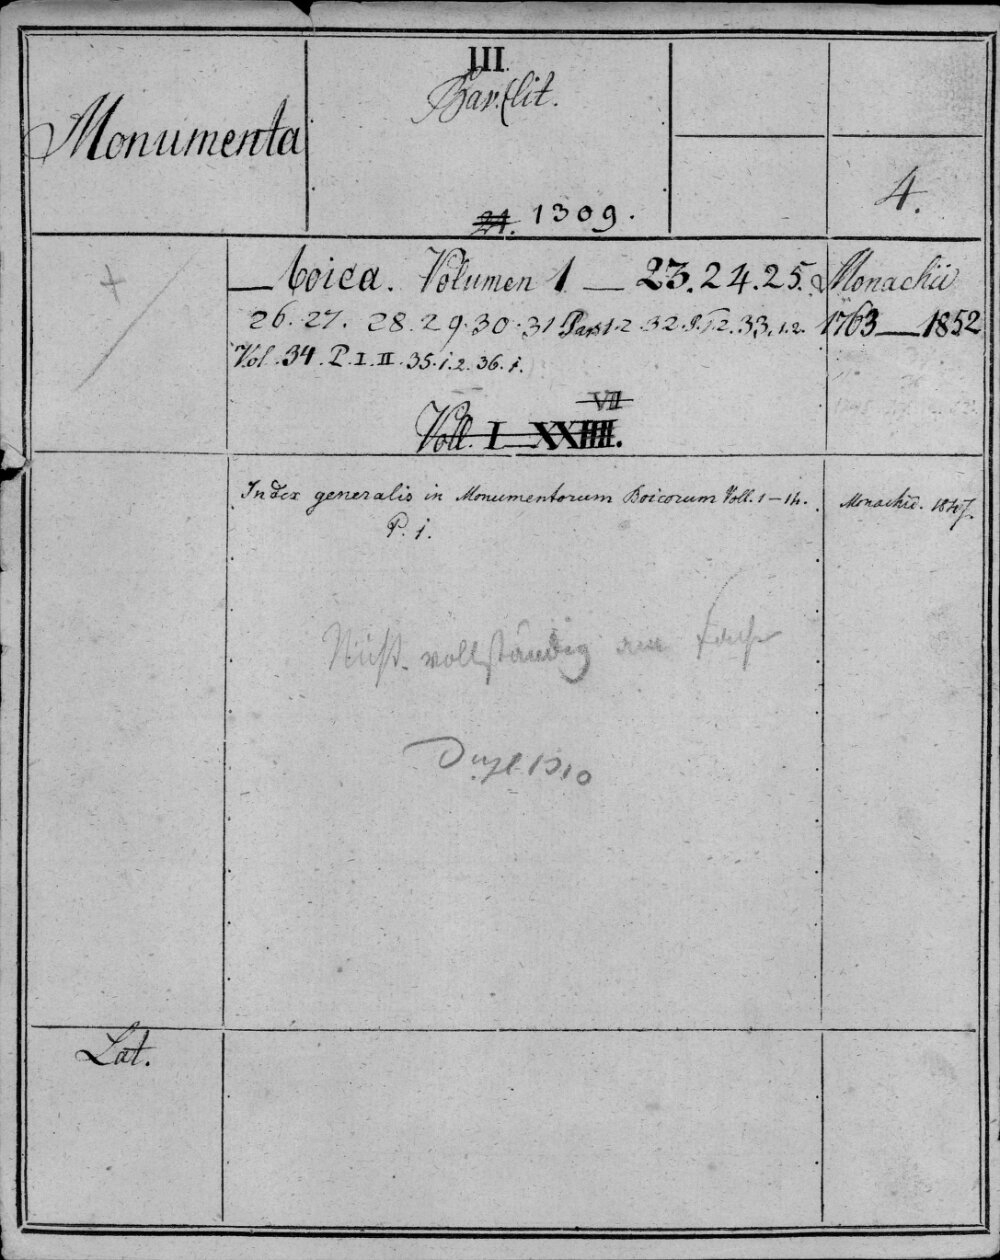 III.
Bav. lit.
Monumenta
4.
24. 1309.
— boica. Volumen 1 — 23. 24. 25. Monachii
26. 27. 28. 29. 30. 31 Pars 1. 2 32. P. 1. 2. 33. 1. 2. 1763 — 1852
Vol. 34. P. I. II. 35. 1. 2. 36. 1.
VII
Voll. I — XXIIII.
Index generalis in Monumentorum Boicorum Voll. 1 – 14. Monachii. 1847.
P. 1.
Nicht vollständig am Fach
1910
Lat.